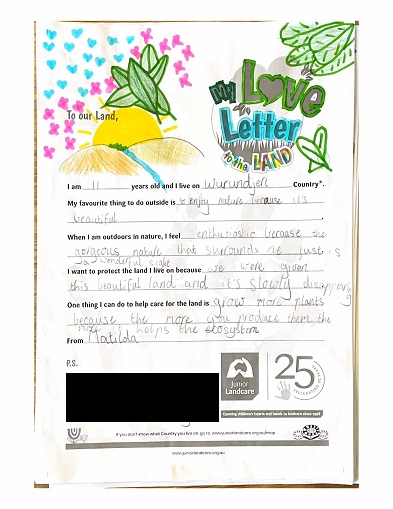 My LOVE
Letter
to the LAND
To our Land,
I am 11 years old and I live on Wurundjeri Country*.
My favourite thing to do outside is to enjoy nature because it's
beautiful.
When I am outdoors in nature, I feel enthusiastic because the
gorgeous nature that surrounds me just is
a wonderful sight
I want to protect the land I live on because we were given
this beautiful land and it's slowly disappearing
One thing I can do to help care for the land is grow more plants
because the more you produce them the
more it helps the ecosystem
From Matilda
P.S.
Junior
Landcare
25 YEARS OF
CELEBRATING
Opening children's hearts and hands to landcare since 1998
If you don't know what Country you live on go to: www.juniorlandcare.org.au/map
www.juniorlandcare.org.au